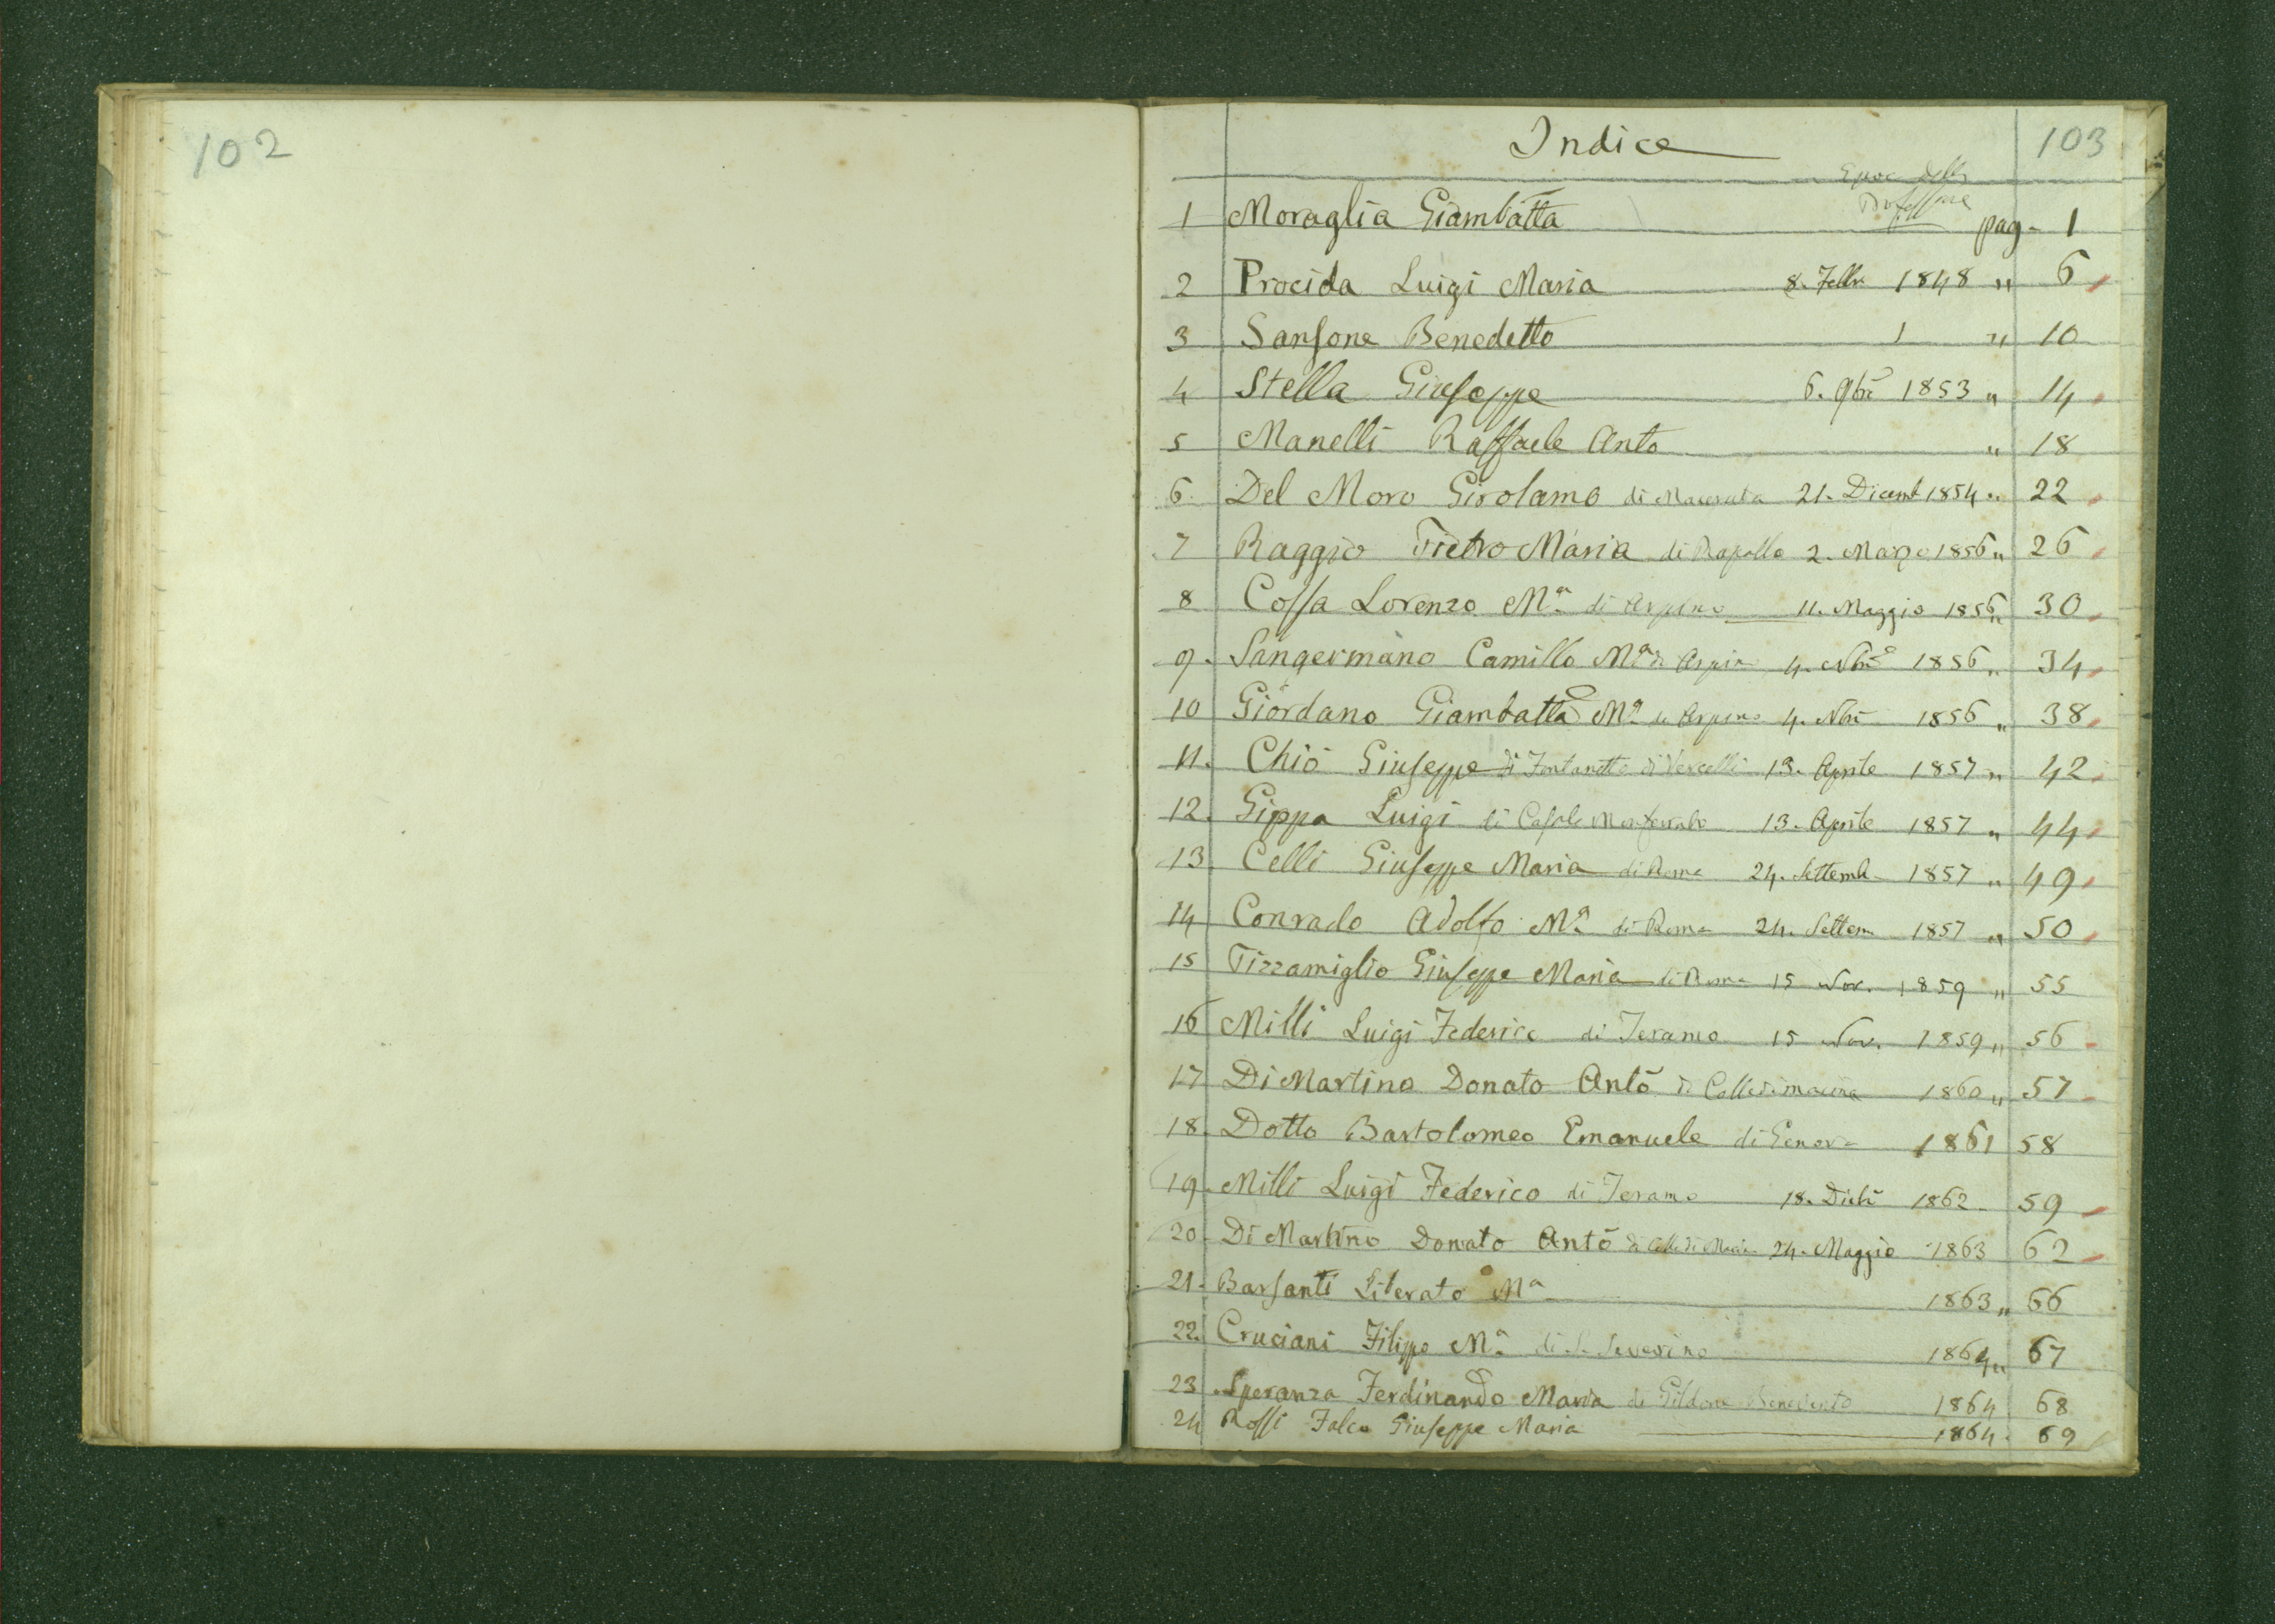 102
103
Indice
Epoca della
Professione
1 Moraglia Giambatta pag. 1
2 Procida Luigi Maria 8. Febbr. 1848 " 6
3 Sansone Benedetto 1 " 10
4 Stella Giuseppe 6. 9bre 1853 " 14
5 Manelli Raffaele Anto " 18
6. Del Moro Girolamo di Macerata 21. Dicemb 1854 " 22
7 Raggio Pietro Maria di Rapallo 2. Marzo 1856 " 26
8 Cossa Lorenzo Mª di Arpino 11. Maggio 1856 " 30
9. Sangermano Camillo Mª di Arpino 4. Nbre 1856 " 34
10 Giordano Giambatta Mª di Arpino 4. Nbre 1856 " 38
11. Chiò Giuseppe di Fontanetto di Vercelli 13. Aprile 1857 " 42
12. Gippa Luigi di Casale Monferrato 13. Aprile 1857 " 44
13. Celli Giuseppe Maria di Roma 24. Settemb. 1857 " 49
14 Conrado Adolfo Mª di Roma 24. Settem. 1857 " 50
15 Tizzamiglio Giuseppe Maria di Roma 15 Nov. 1859 " 55
16 Milli Luigi Federico di Teramo 15 Nov. 1859 " 56
17 Di Martino Donato Antō di Colledimacina 1860 " 57
18. Dotto Bartolomeo Emanuele di Genova 1861 58
19. Milli Luigi Federico di Teramo 18. Dicbr 1862 59
20. Di Martino Donato Antō di Colle di Macine 24. Maggio 1863 62
21. Barsanti Liberato Mª 1863 " 66
22. Cruciani Filippo Mª di S. Severino 1864 " 67
23 Speranza Ferdinando Maria di Gildone Benevento 1864 68
24 Rossi Falco Giuseppe Maria 1864. 69